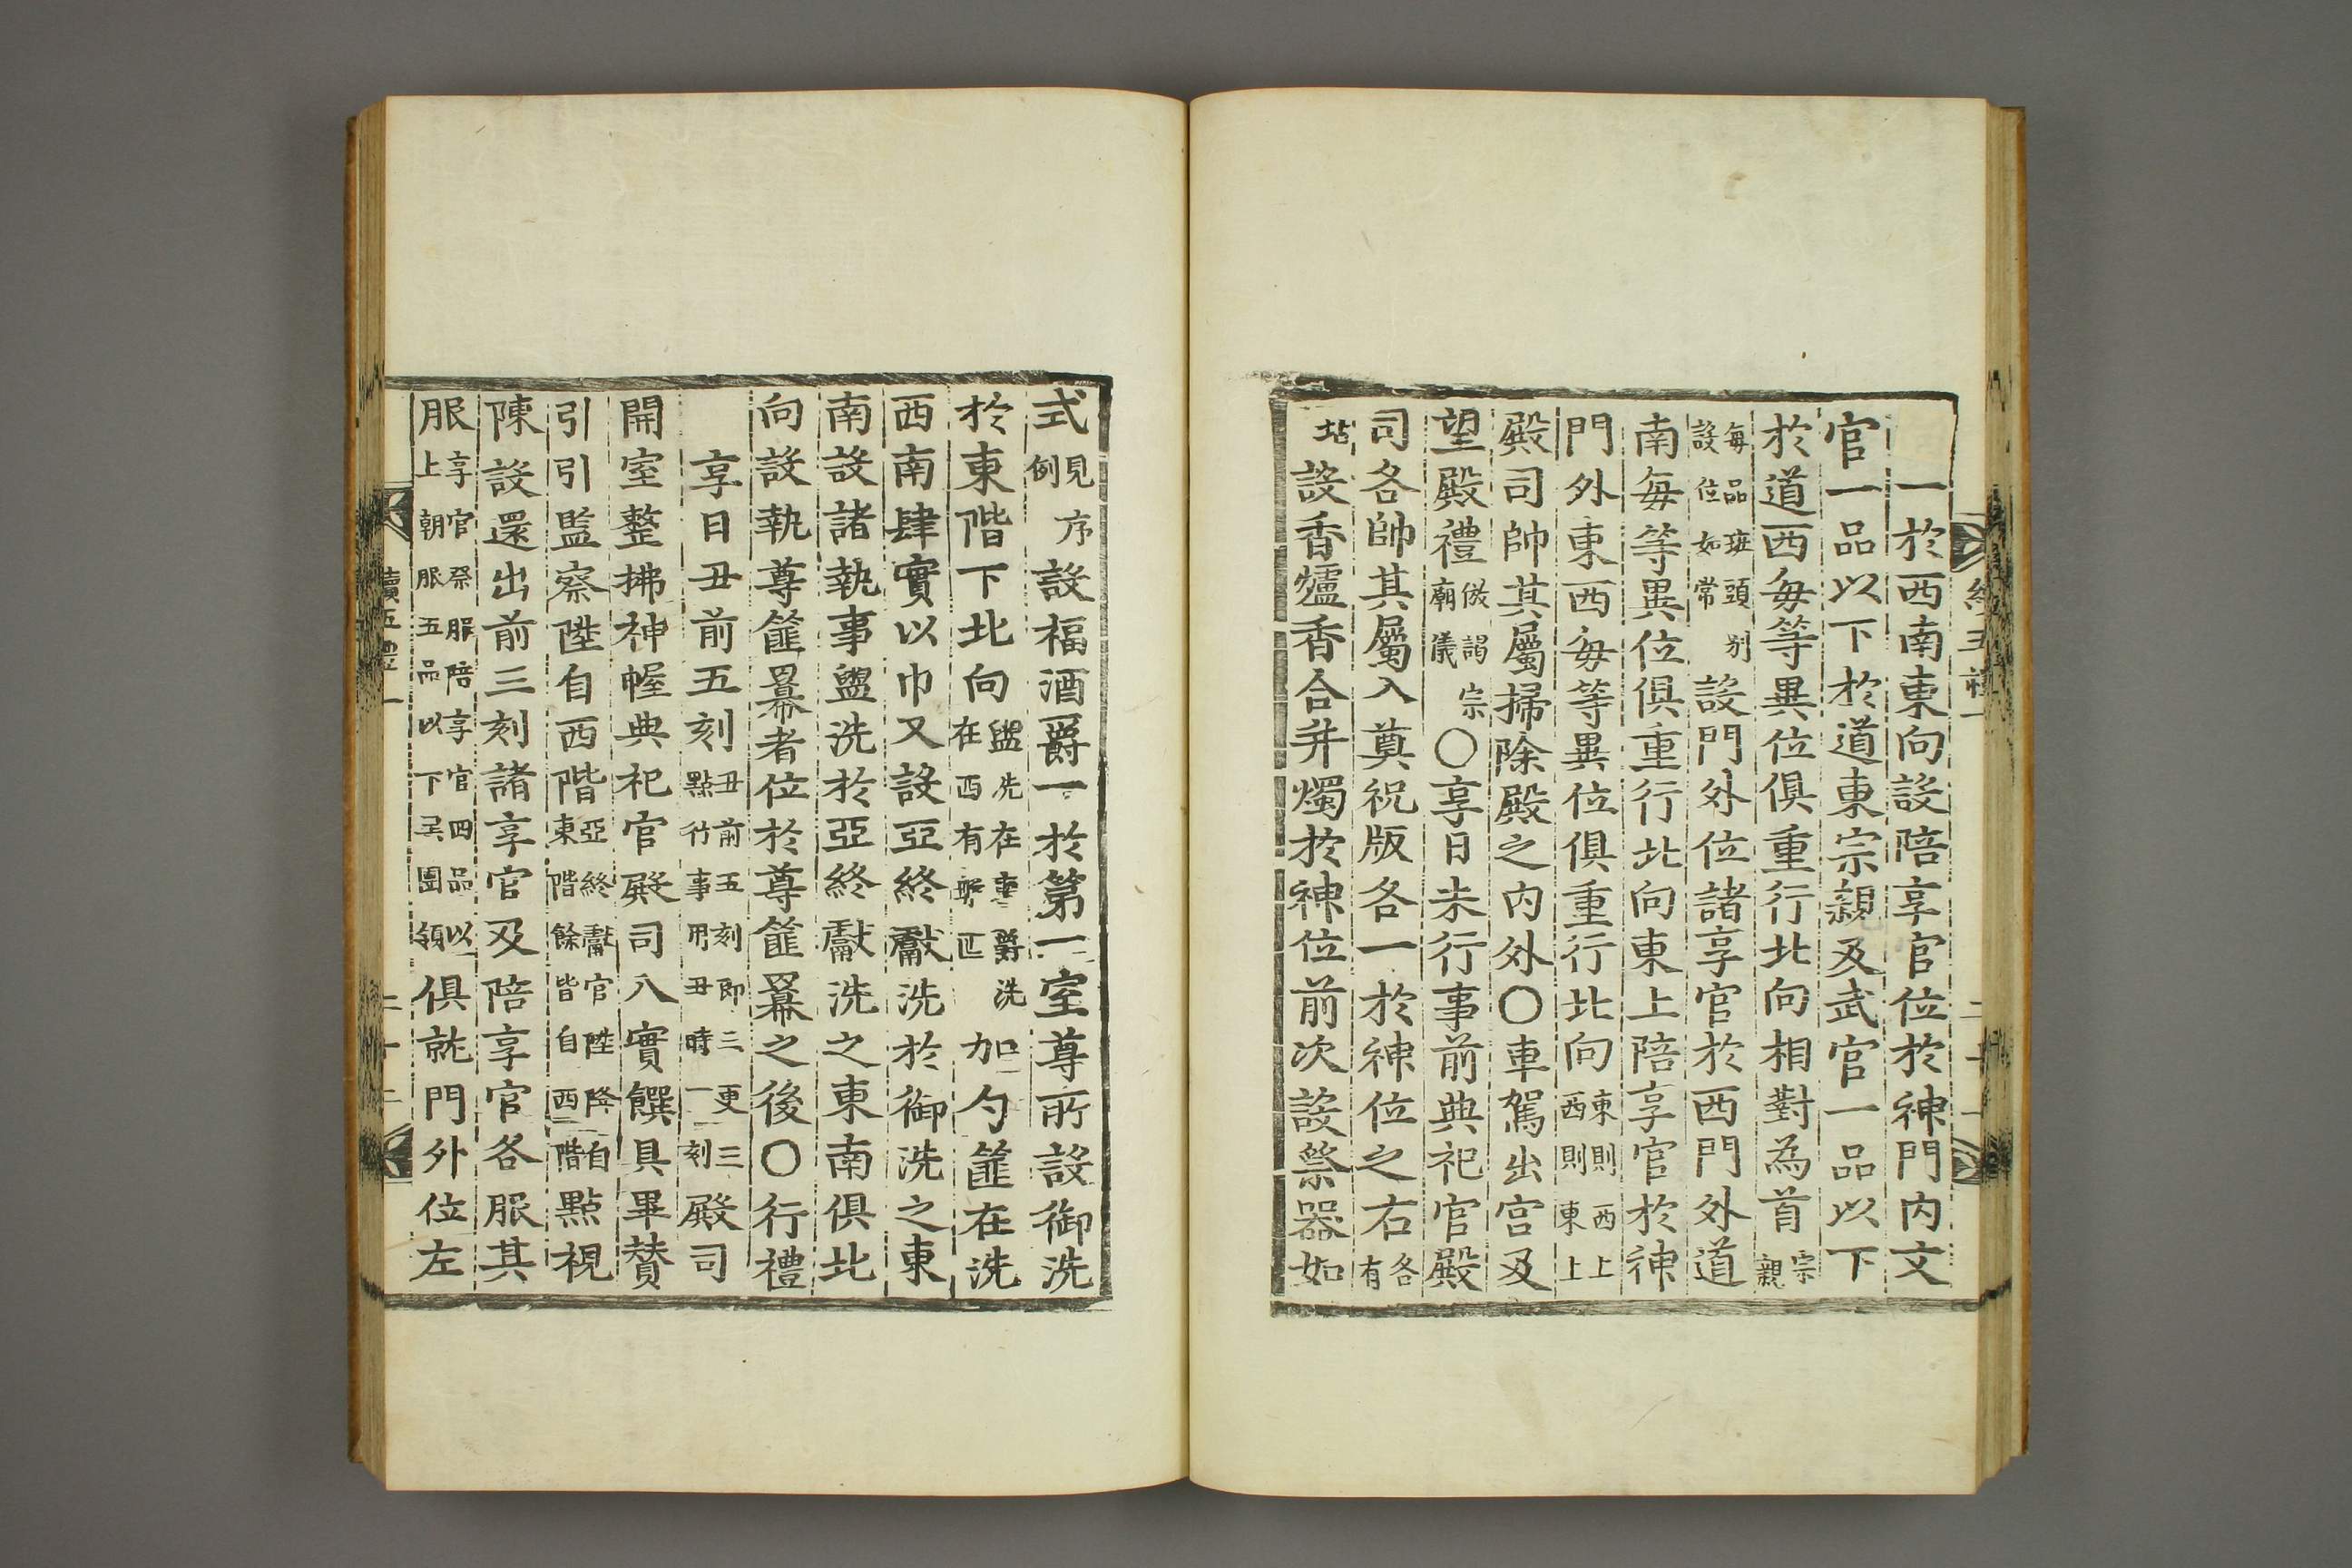 一於西南東向設陪享官位於神門內文
官一品以下於道東宗親及武官一品以下
於道西每等異位俱重行北向相對為首宗親
每品班頭別設位如常設門外位諸享官於西門外道
南每等異位俱重行北向東上陪享官於神
門外東西每等異位俱重行北向東則西上西則東上
殿司帥其屬掃除殿之內外〇車駕出宮及
望殿禮倣謁宗廟儀〇享日未行事前典祀官殿
司各帥其屬入奠祝版各一於神位之右各有
坫設香爐香合并燭於神位前次設祭器如
式見序例設福酒爵一於第一室尊所設御洗
於東階下北向盥洗在東爵洗在西有槃匜加勺篚在洗
西南肆實以巾又設亞終獻洗於御洗之東
南設諸執事盥洗於亞終獻洗之東南俱北
向設執尊篚羃者位於尊篚羃之後〇行禮
享日丑前五刻丑前五刻即三更三點行事用丑時一刻殿司
開室整拂神幄典祀官殿司入實饌具畢贊
引引監察陞自西階亞終獻官陞降自東階餘皆自西階點視
陳設還出前三刻諸享官及陪享官各服其
服享官祭服陪享官四品以上朝服五品以下黑團領俱就門外位左
續五禮一
二十二